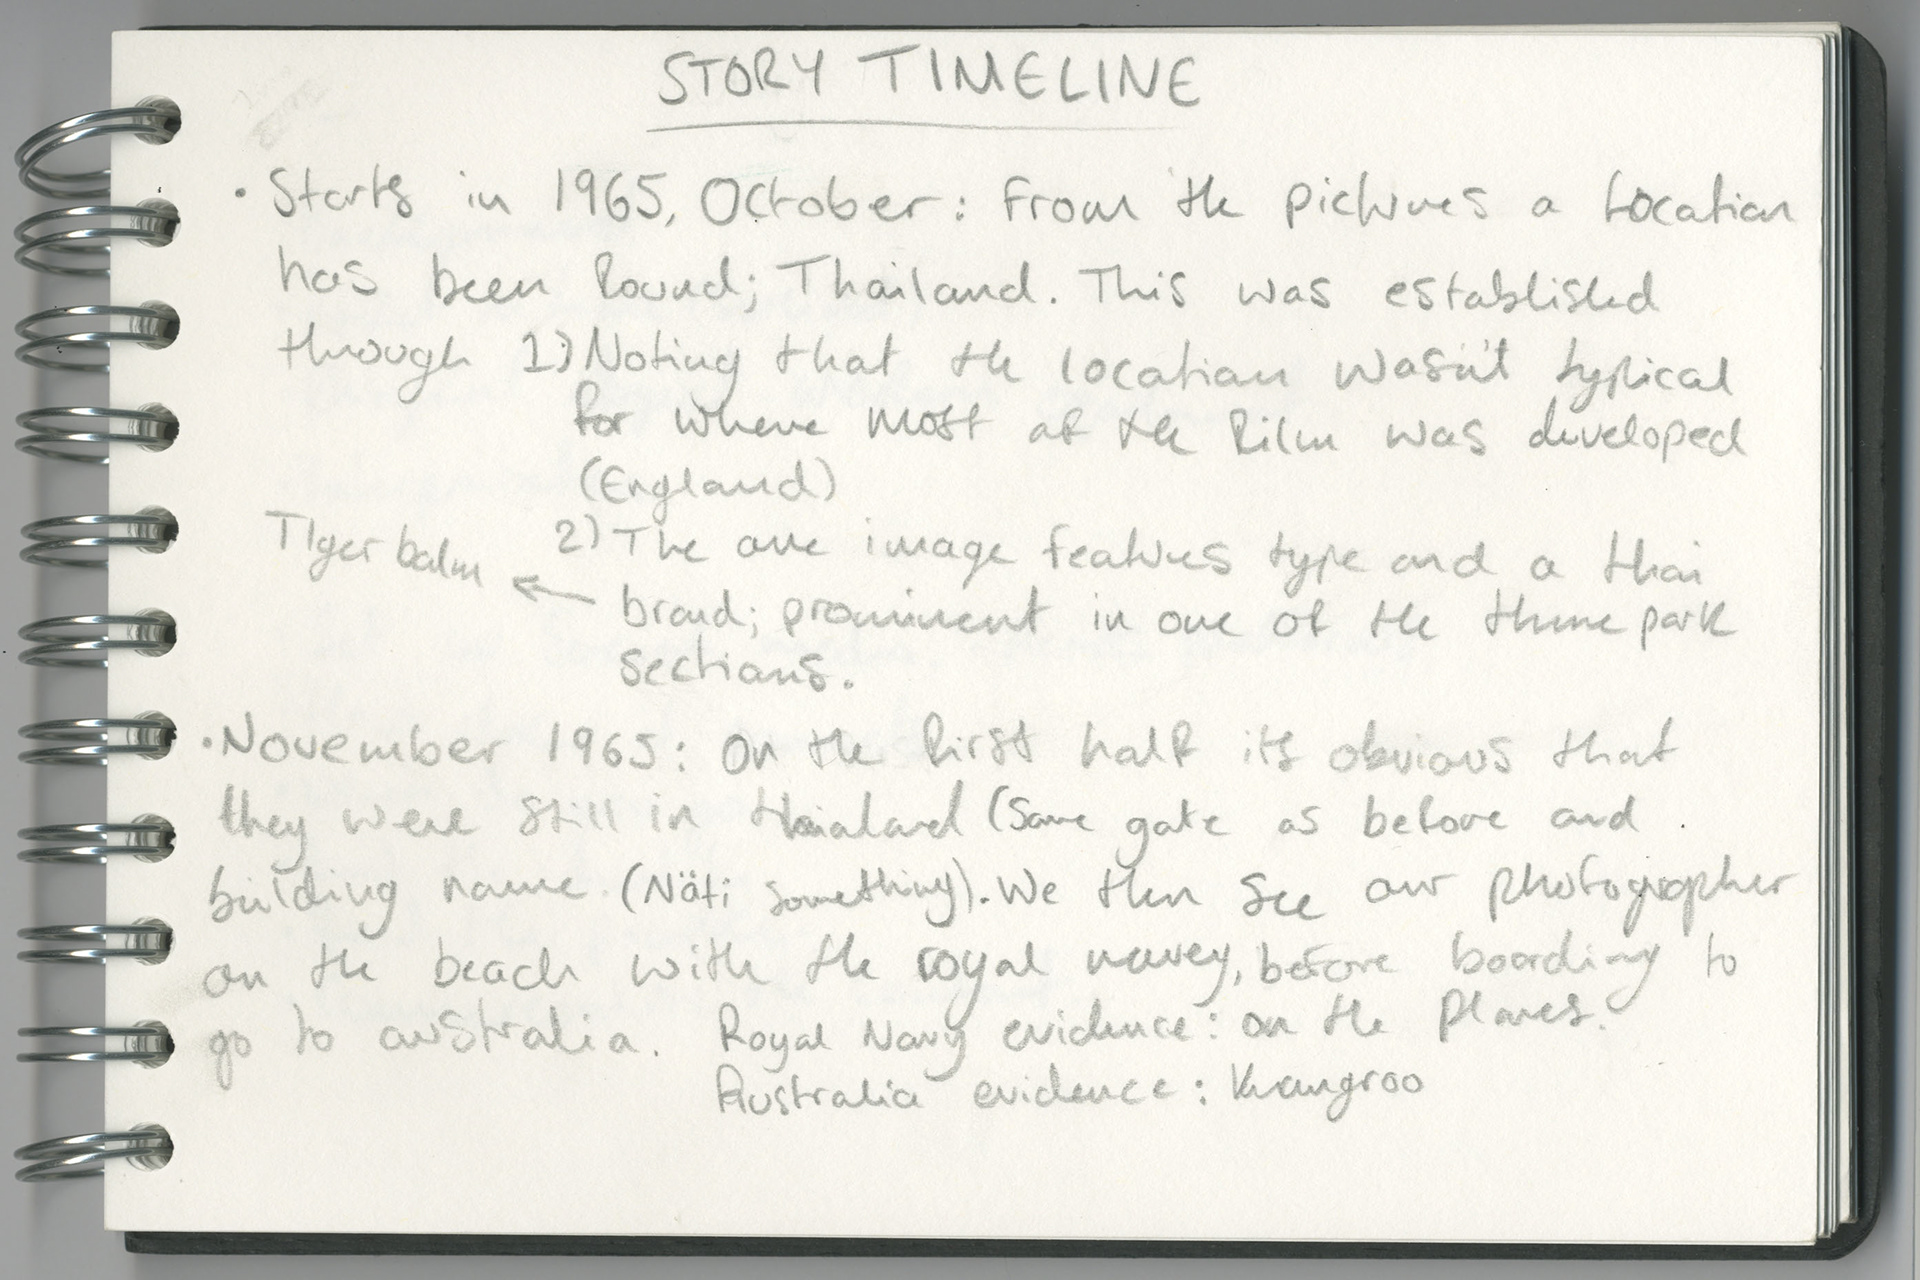 STORY TIMELINE
• Starts in 1965, October: From the pictures a location
has been found; Thailand. This was established
through 1) Noting that the location wasn't typical
for where most of the film was developed
(England)
Tiger balm ← 2) The one image features type and a thai
brand; prominent in one of the theme park
sections.
• November 1965: On the first half its obvious that
they were still in thaialand (Same gate as before and
building name (Näti something). We then see our photographer
on the beach with the royal navey, before boarding to
go to australia. Royal Navy evidence: on the planes.
Australia evidence: Kuangroo